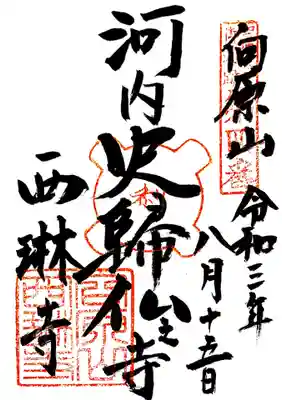 向原山
令和三年
八月十五日
河内史歸仏之寺
西琳寺